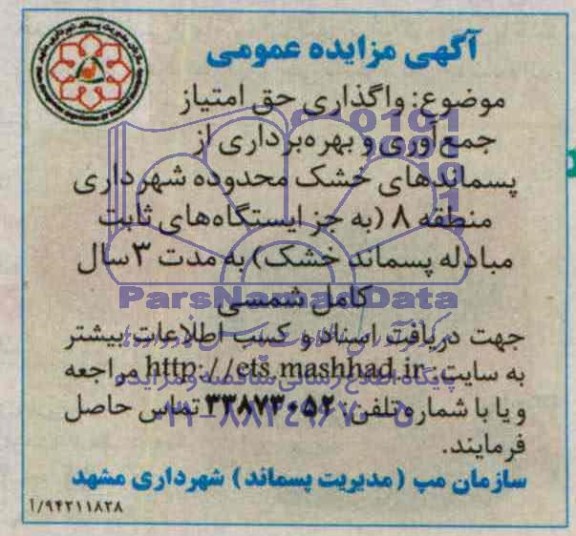 آگهی مزایده عمومی
موضوع: واگذاری حق امتیاز
جمع‌آوری و بهره‌برداری از
پسماندهای خشک محدوده شهرداری
منطقه ۸ (به جز ایستگاه‌های ثابت
مبادله پسماند خشک) به مدت ۳ سال
کامل شمسی
ParsNamadData
جهت دریافت اسناد و کسب اطلاعات بیشتر
به سایت: http://ets.mashhad.ir مراجعه
و یا با شماره تلفن: ۳۳۸۷۳۰۵۲ تماس حاصل
فرمایند.
سازمان مپ (مدیریت پسماند) شهرداری مشهد
۱/۹۴۲۱۱۸۲۸